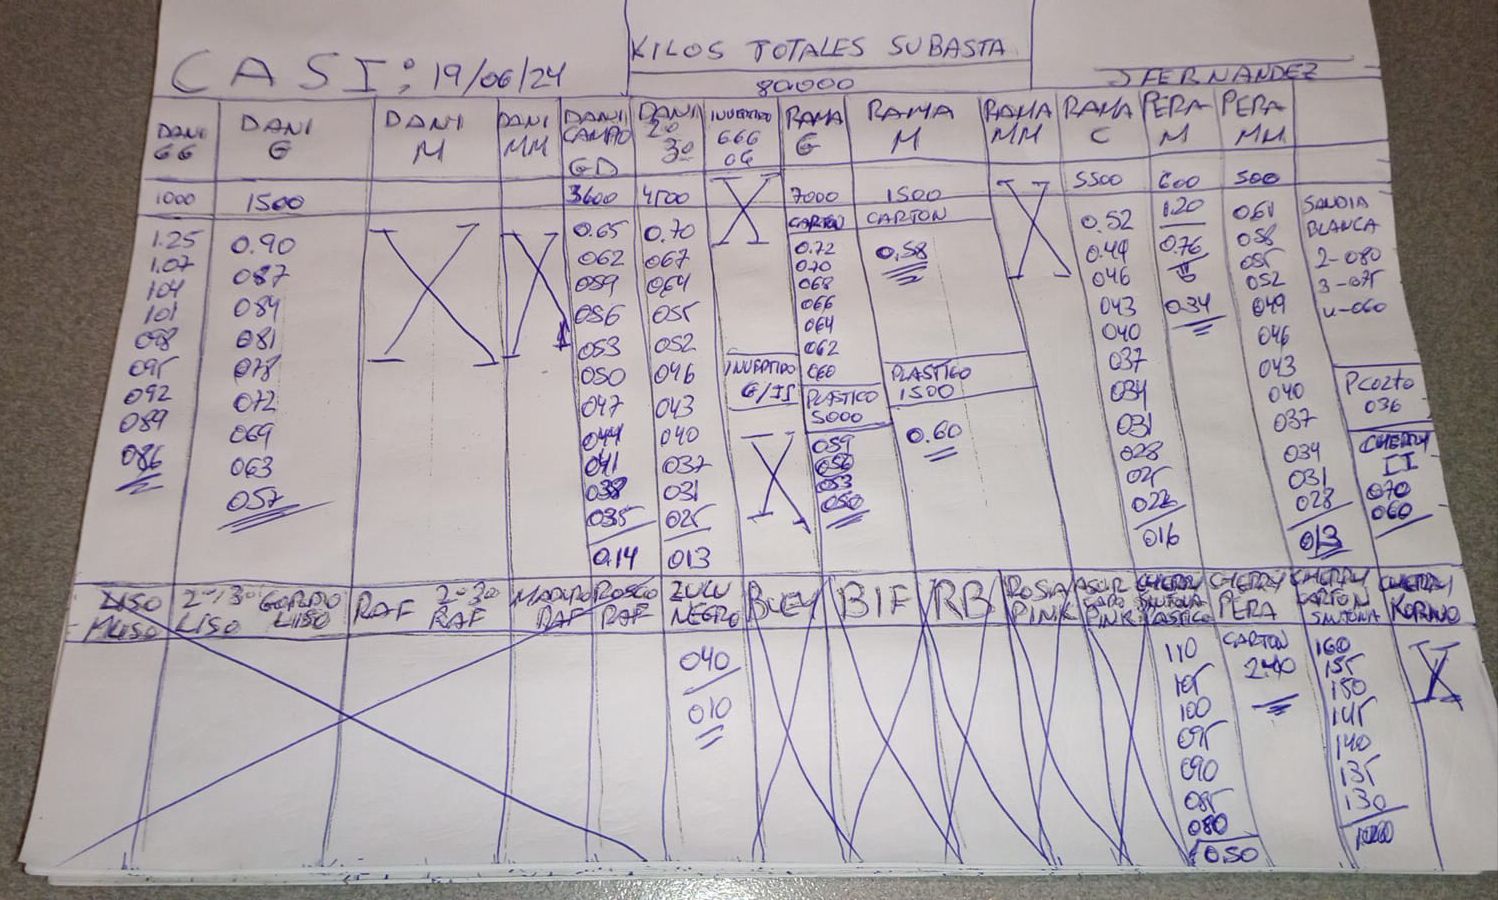 CASI: 19/06/24
KILOS TOTALES SUBASTA
80000
J FERNANDEZ
DANI GG
1000
1.25
1.07
104
101
098
095
092
089
086
DANI G
1500
0.90
087
084
081
078
072
069
063
057
DANI M
DANI MM
DANI CAMPO GD
3600
0.65
062
059
056
053
050
047
044
041
038
035
0.14
DANI 2º 3º
4500
0.70
067
064
055
052
046
043
040
037
031
025
013
INVERTIDO
666
OG
INVERTIDO
G/II
RAMA G
7000
CARTON
0.72
070
068
066
064
062
060
PLASTICO
5000
059
056
053
050
RAMA M
1500
CARTON
0.58
PLASTICO
1500
0.60
RAMA MM
RAMA C
5500
0.52
0.49
046
043
040
037
034
031
028
025
022
016
PERA M
600
1.20
0.76
0.34
PERA MM
500
061
058
055
052
049
046
043
040
037
034
031
028
013
SANDIA
BLANCA
2-080
3-075
4-060
036
CHERRY
II
070
060
LISO
2º 3º LISO
GORDO LISO
RAF
2º 3º RAF
RAF
ROSCO RAF
ZULU NEGRO
040
010
BUEY
BIF
RB
ROSA PINK
PINK
CHERRY
110
105
100
095
090
085
080
0.50
CHERRY PERA
CARTON
2.40
CHERRY CARTON
160
155
150
145
140
135
130
CHERRY